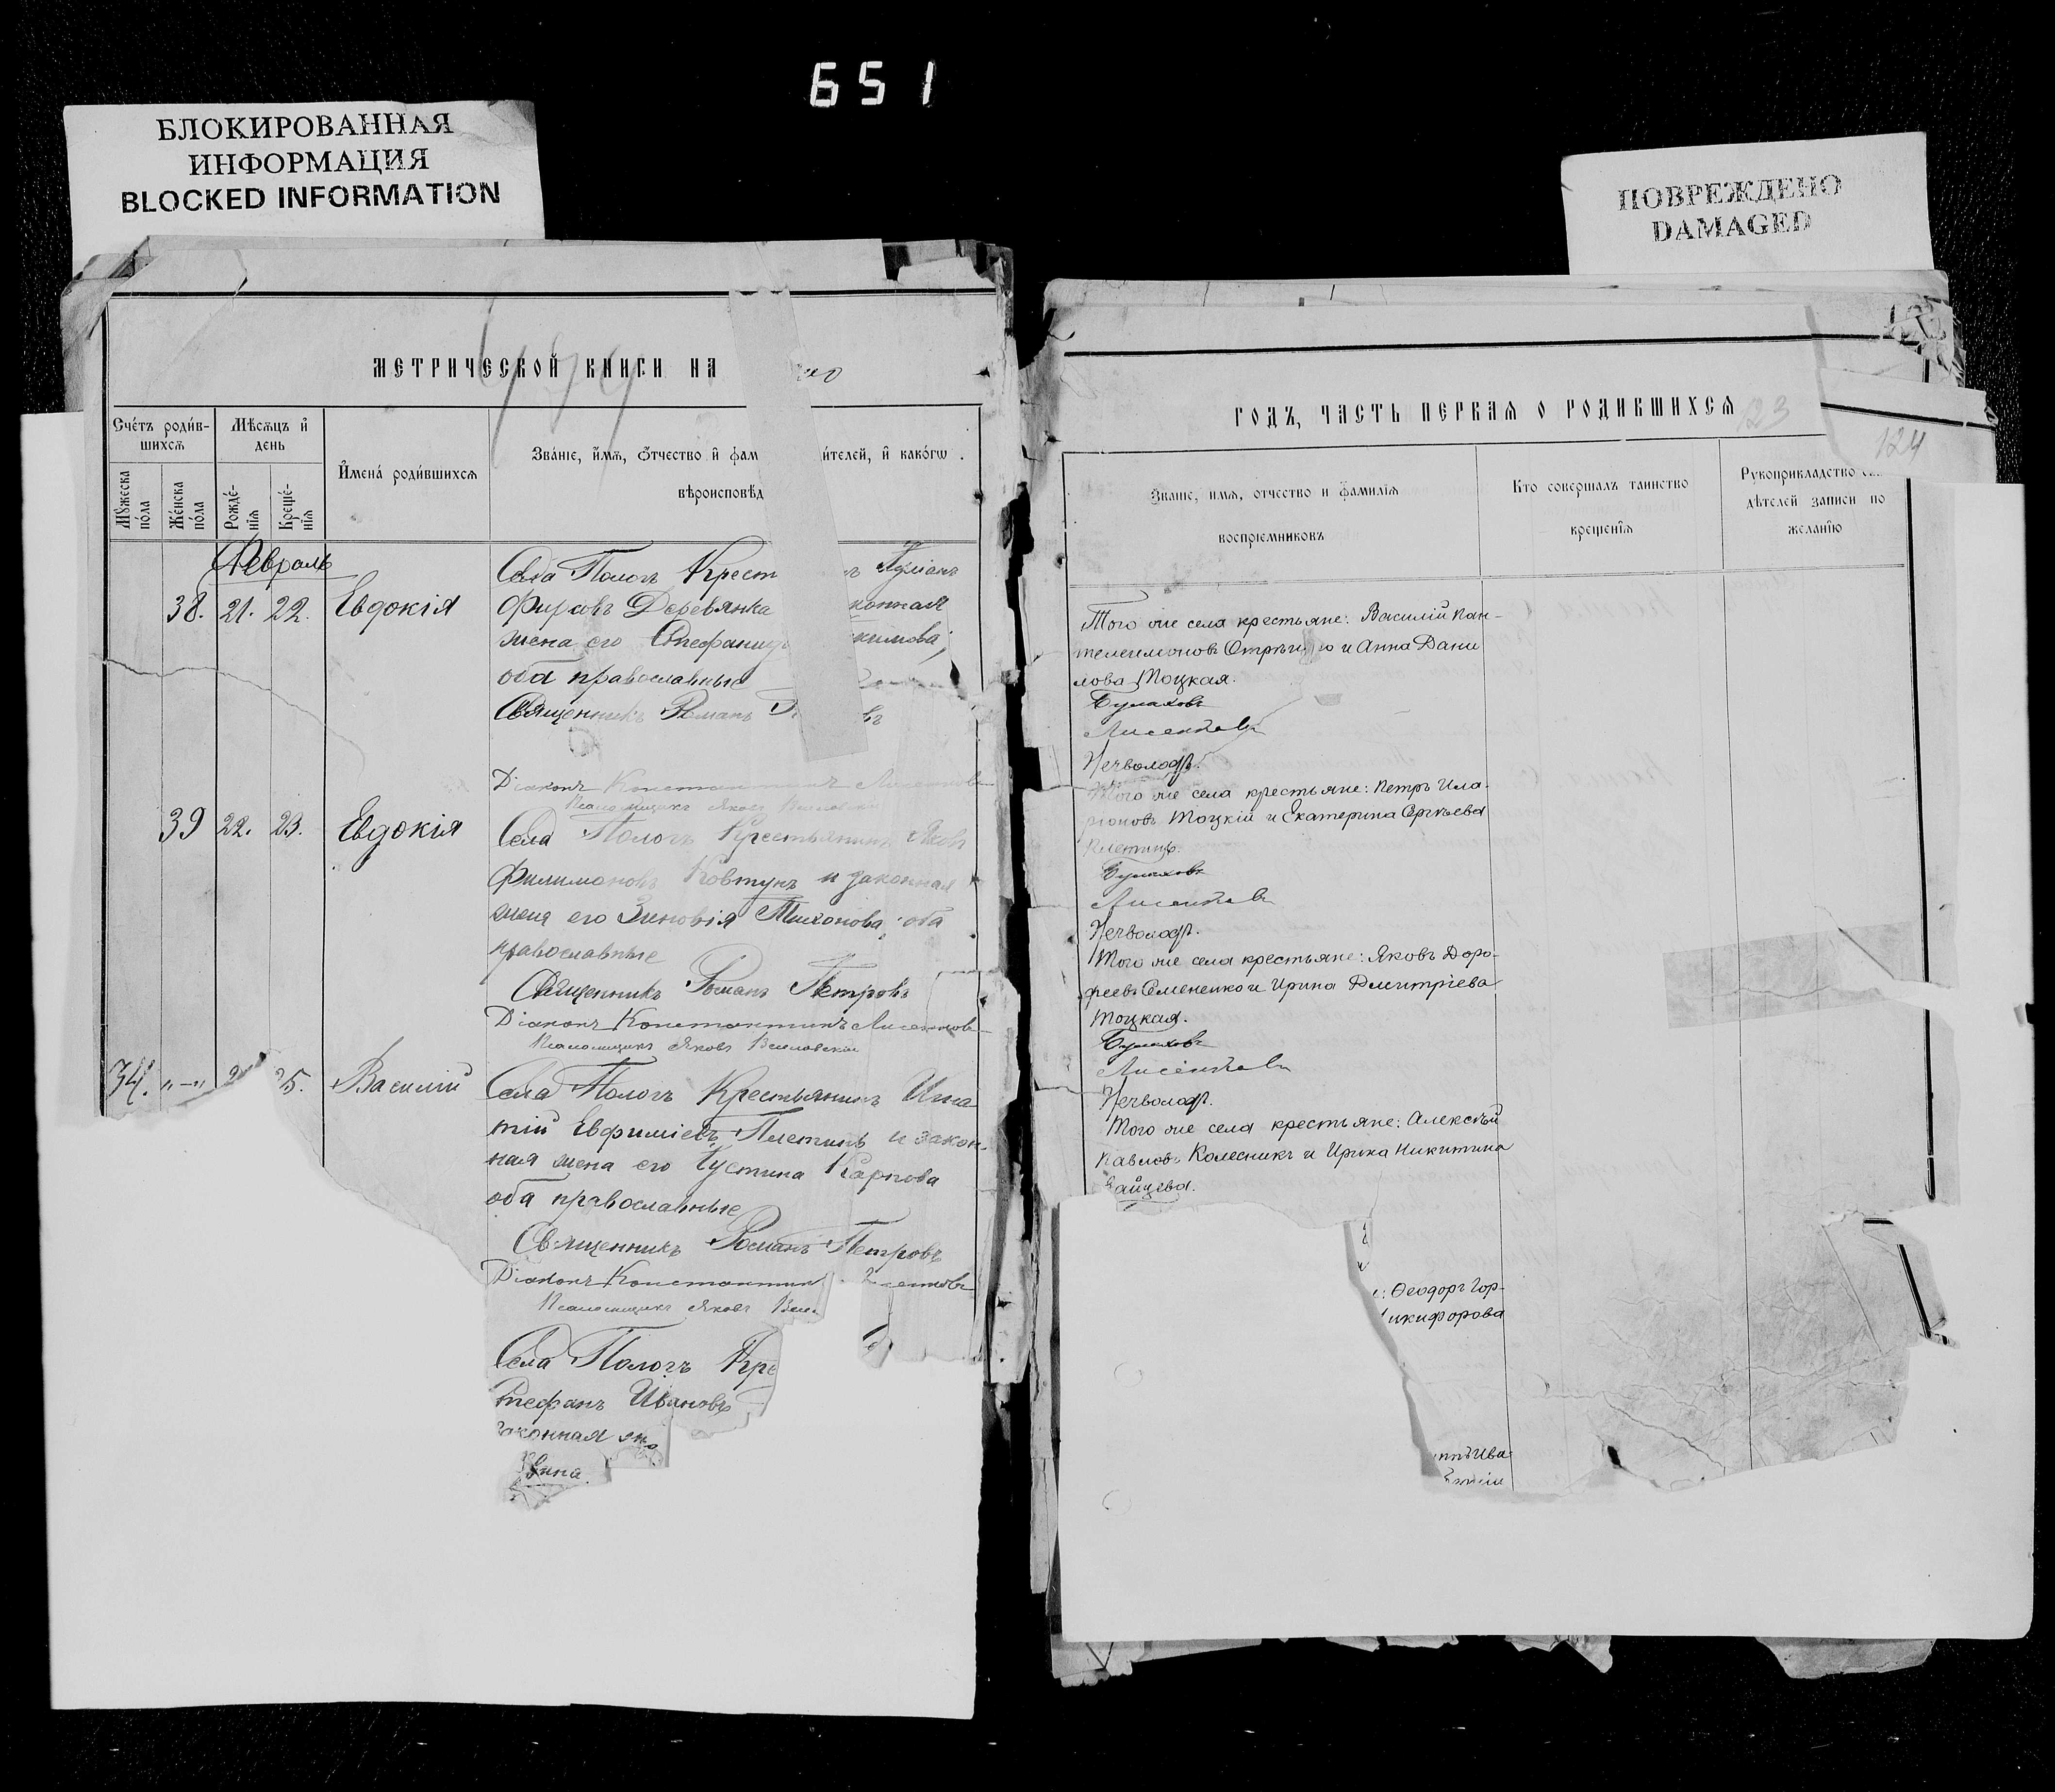 651
БЛОКИРОВАННАЯ
ИНФОРМАЦИЯ
BLOCKED INFORMATION
ПОВРЕЖДЕНО
DAMAGED
МЕТРИЧЕСКОЙ КНИГИ НА
Счётъ родив-
шихсѧ
Мѣсѧцъ и
день
Имена родившихсѧ
Званіе, имѧ, отчество и фам ителей, и какогѡ
вѣроисповѣд
Мужеска
пола
Женска
пола
Рожде-
нїѧ
Креще-
нїѧ
Февраль
38. 21. 22. Евдокія
Села Пологъ Крест
Фирсовъ Деревянка конная
жена его Стефанид кимова;
оба православные
Священникъ Романъ
Діаконъ Константинъ Лисенковъ
Псаломщикъ Яковъ
39 22. 23. Евдокія
Села Пологъ Крестьянинъ Яковъ
Филимоновъ Ковтунъ и законная
жена его Зиновія Тихонова; оба
православные
Священникъ Романъ Петровъ
Діаконъ Константинъ Лисенковъ
Псаломщикъ Яковъ
34. „—„ 25. Василій
Села Пологъ Крестьянинъ Игна
тій Евфиміевъ Плетинь и закон-
ная жена его Іустина Карпова
оба православные
Священникъ Романъ Петровъ
Діаконъ Константин
Псаломщикъ Яковъ
Села Пологъ Кре
Стефанъ Ивановъ
законная же
ГОДЪ, ЧАСТЬ ПЕРВАѦ О РОДИВШИХСѦ
123
124
Званіе, имѧ, отчество и фамилїѧ
воспріемниковъ
Кто совершалъ таинство
крещенїѧ
Рукоприкладство
дѣтелей записи по
желанїю
Того же села крестьяне: Василій Пан-
телеимоновъ и Анна Дани
лова Тоцкая.
Булаховъ
Лисенковъ
Нечволодъ.
Того же села крестьяне: Петръ Ила-
ріоновъ Тоцкій и Екатерина Сергѣева
Плетинь.
Булаховъ
Лисенковъ
Нечволодъ.
Того же села крестьяне: Яковъ Доро-
феевъ Семененко и Ирина Дмитріева
Тоцкая.
Булаховъ
Лисенковъ
Нечволодъ.
Того же села крестьяне: Алексѣй
Павловъ Колесникъ и Ирина Никитина
Зайцева.
: Ѳеодоръ Гор-
Никифорова